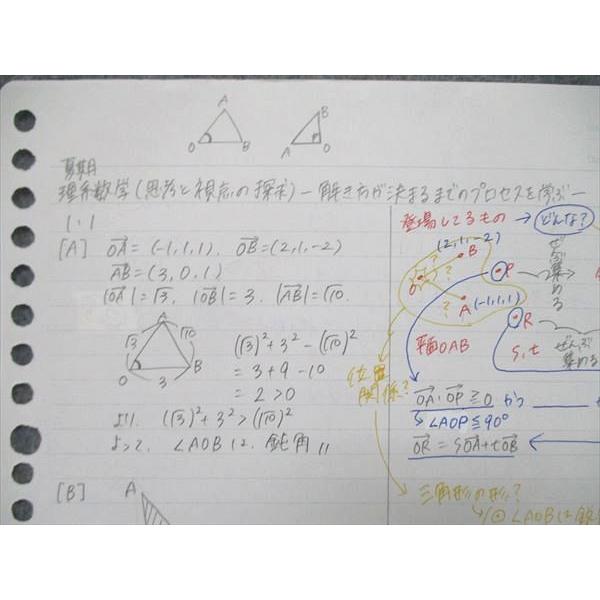 A
O B
B
A O
夏期
理系数学(思考と視点の探求)―解き方が決まるまでのプロセスを学ぶ―
1.1
[A] OA = (-1,1,1), OB = (2,1,-2)
AB = (3,0,1)
|OA| = √3, |OB| = 3, |AB| = √10.
A
√3 √10
O 3 B
(√3)²+3²-(√10)²
= 3+9-10
= 2 > 0
より, (√3)²+3² > (√10)²
よって, ∠AOBは, 鈍角〃
[B] A
登場してるもの → どんな?
(2,1,-2)
B
P
O
A (-1,1,1)
R
ぜんぶ集める
平面OAB
s,t
ぜんぶ
集める
位置
関係?
OA・OP ≧ 0 かつ
∠AOP ≦ 90°
OR = sOA+tOB
三角形の形?
∠AOBは鈍